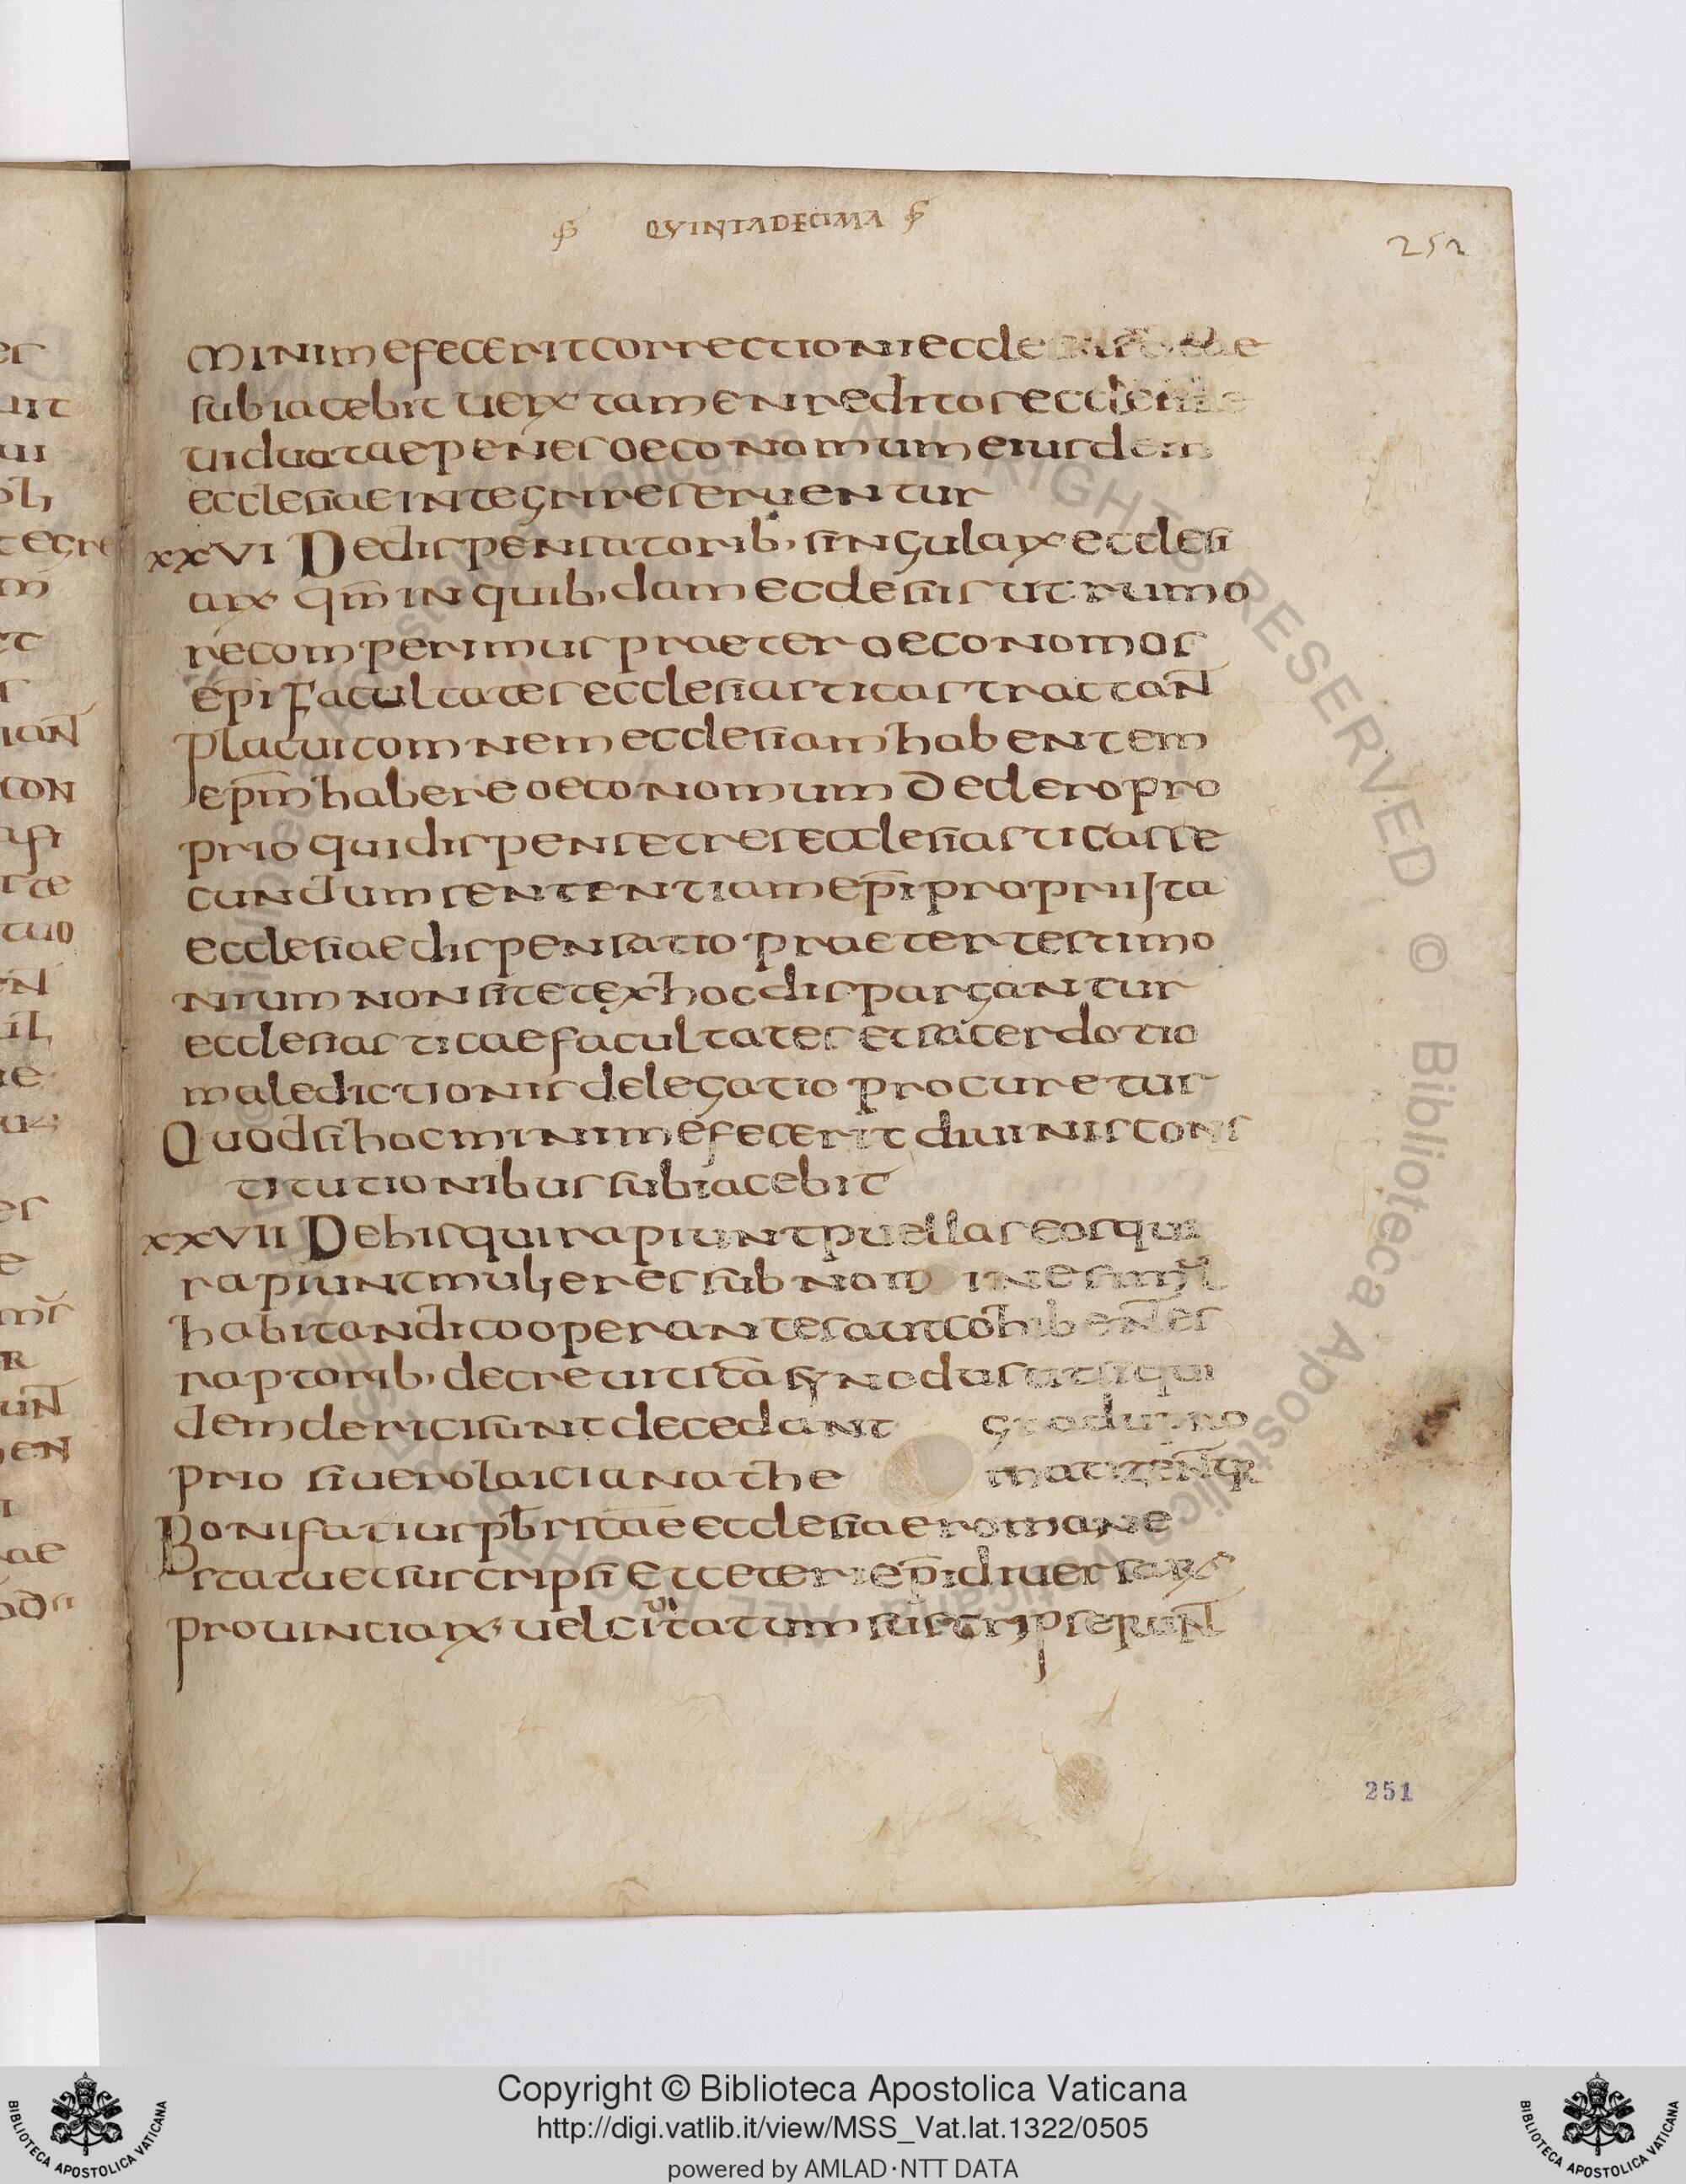 QUINTADECIMA
252
minime fecerit correctioni eccle
subiacebit ueꝝ tamen reditos ecclesiae
uiduatae penes oeconomum eiusdem
ecclesiae integri reseruentur
xxvi De dispensatorib, singulaꝝ eccles
aꝝ qm̄ in quib,dam ecclesiis ut rumo
re comperimus praeter oeconomos
ep̄i facultates ecclesiasticas tractan̄
placuit omnem ecclesiam habentem
ep̄m habere oeconomum de clero pro
prio qui dispenset res ecclesiasticas se
cundum sententiam ep̄i proprii ita
ecclesiae dispensatio praeter testimo
nium non sit et ex hoc dispargantur
ecclesiasticae facultates et sacerdotio
maledictionis delegatio procuretur
Quod si hoc minime fecerit diuinis cons
titutionibus subiacebit
xxvii De his qui rapiunt puellas eos qui
rapiunt mulieres sub nom ine simul
habitandi cooperantes aut cohiben̄es
raptorib, decreuit sc̄a synodus ut siqui
dem clerici sunt decedant gradu pro
prio si uero laici anathe matizen̄t
Bonifatius pb̄r sc̄ae ecclesiae romane
statuet suscripsi Et ceteri ep̄i diuersaꝝ
prouinciaꝝ uel ciuitatum
251
Copyright © Biblioteca Apostolica Vaticana
http://digi.vatlib.it/view/MSS_Vat.lat.1322/0505
powered by AMLAD·NTT DATA
BIBLIOTECA APOSTOLICA VATICANA
BIBLIOTECA APOSTOLICA VATICANA